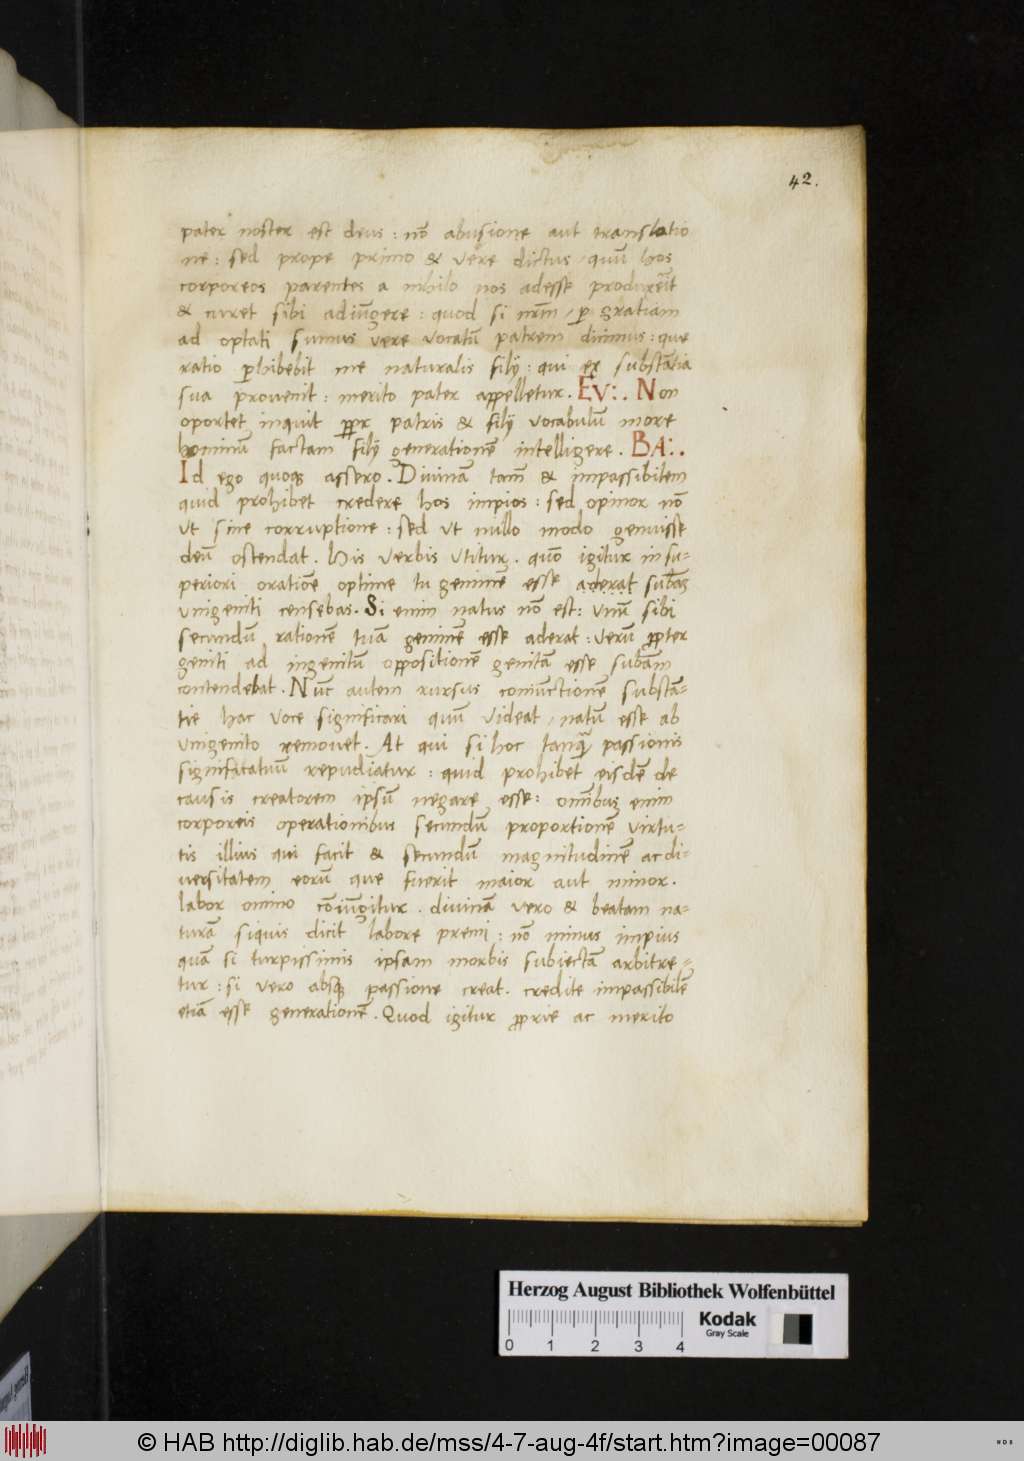 42.
pater noster est deus : nō abusione aut translatio
ne : sed prope primo & vere dictus / quū hos
corporeos parentes a nihilo nos adesse
& curet sibi adiūgere : quod si / gratiam
ad optati sumus vere vocatū patrem dicimus : que
ratio ꝑhibebit me naturalis filij : qui ex substātia
sua provenit : merito pater appelletur . EV : . Non
oportet inquit patris & filij vocabulū more
hominū factam filij generationē intelligere . BA : .
Id ego quoqꝫ assero . Divinā tam̄ & impassibilem
quid prohibet credere hos impios : sed opinor nō
ut sine corruptione : sed ut nullo modo genuisse
deū ostendat . His verbis utitur . quō igitur in su=
periori oratiōe optime tu geniniē esse aderat
unigeniti censebas . Si enim natus nō est : unū sibi
secundū rationē tuā geniniē esse aderat : verū ꝓpter
geniti ad ingenitū oppositionē genitā esse subām
contendebat . Nūc autem rursus coniūctionē substā=
tie hac voce significari quū videat / natū esse ab
unigenito removet . At qui si hoc tanquā passionis
significatiuū repudiatur : quid prohibet eisdē de
causis creatorem ipsū negare esse : omībus enim
corporeis operationibus secundū proportionē virtu=
tis illius qui facit & secundū magnitudinē ac di=
uersitatem eorū que fuerit maior aut minor .
labor omīno cōiūgitur . divinā vero & beatam na=
turā siquis dicit labore premi : nō minus impius
quā si turpissimis ipsam morbis subiectā arbitre=
tur : si vero absqꝫ passione creat . credite impassibilē
etiā esse generationē . Quod igitur ꝓprie ac merito
Herzog August Bibliothek Wolfenbüttel
0 1 2 3 4
Kodak
Gray Scale
© HAB http://diglib.hab.de/mss/4-7-aug-4f/start.htm?image=00087